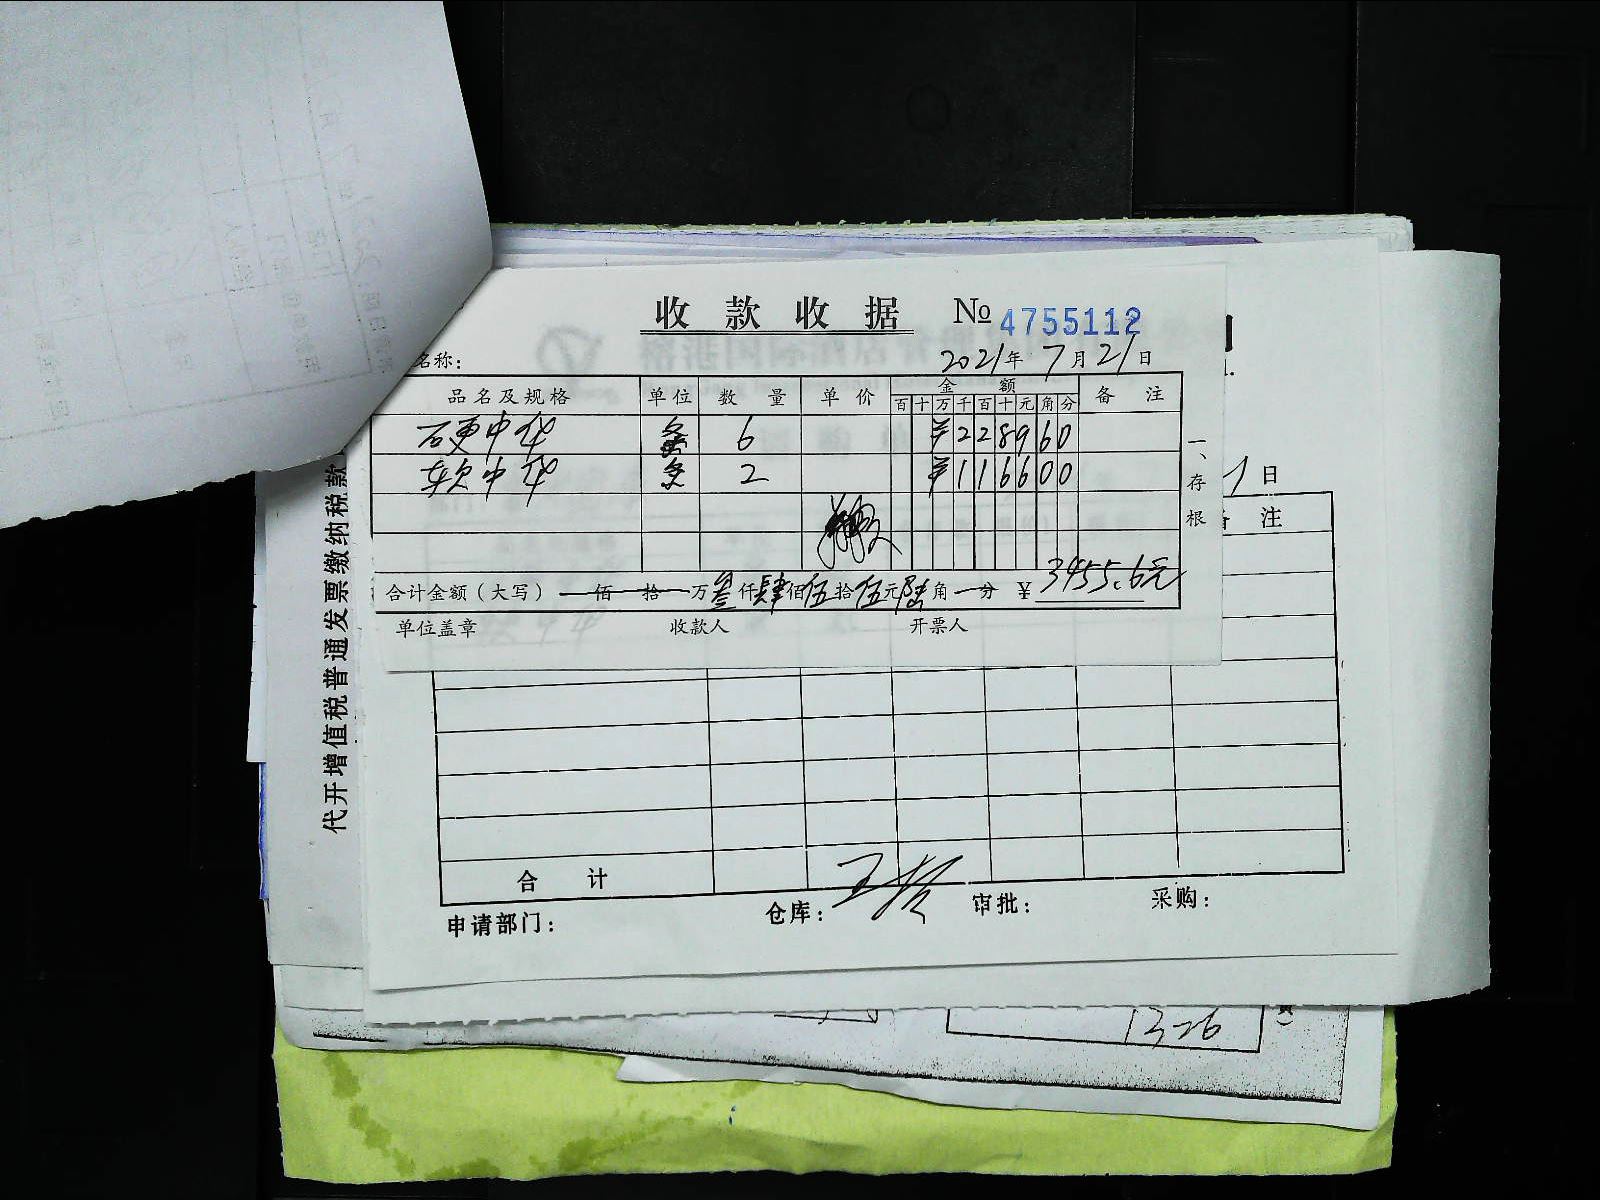 收款收据 № 4755112
名称： 2021年7月21日
品名及规格 单位 数量 单价 金额 备注
百十万千百十元角分
硬中华 条 6 ¥228960
软中华 条 2 ¥116600
合计金额（大写） 佰 拾 万叁仟肆佰伍拾伍元陆角 分 ¥ 3455.6元
单位盖章 收款人 开票人
一、存根
日
备注
合计
申请部门： 仓库： 审批： 采购：
代开增值税普通发票缴纳税款
13-26